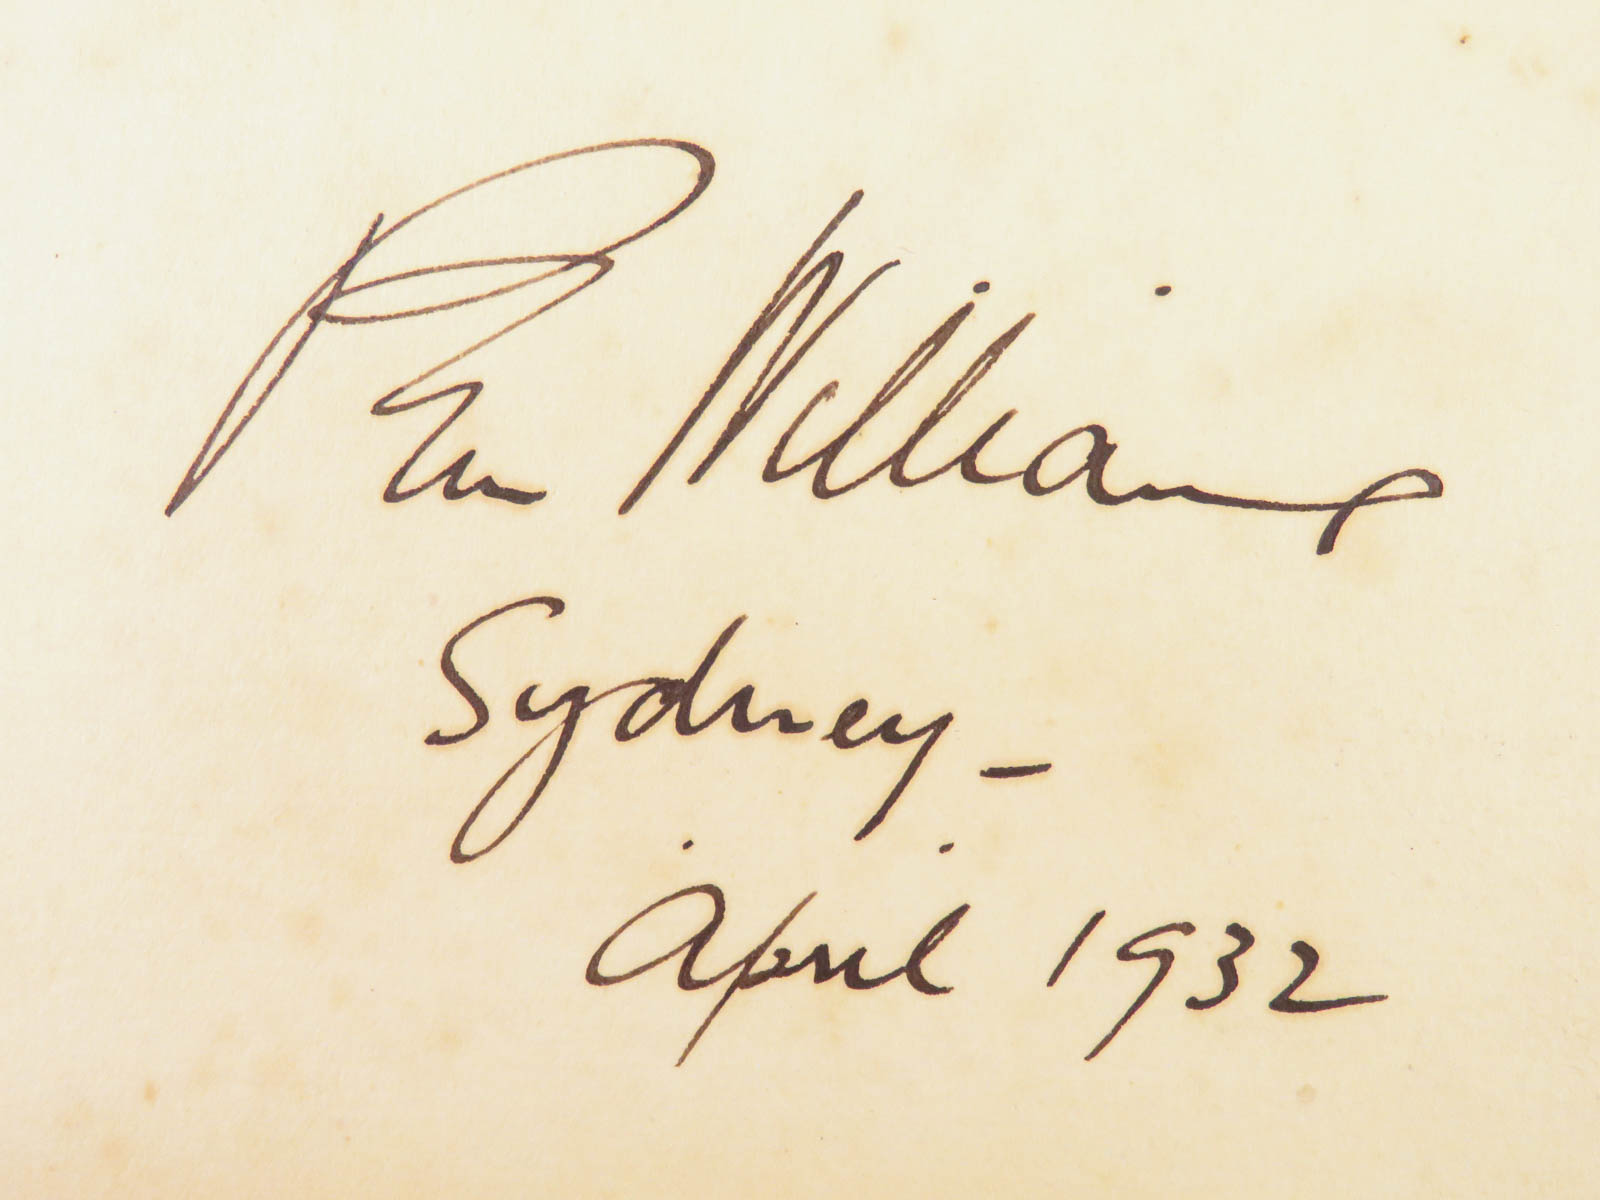 Williams
Sydney -
April 1932